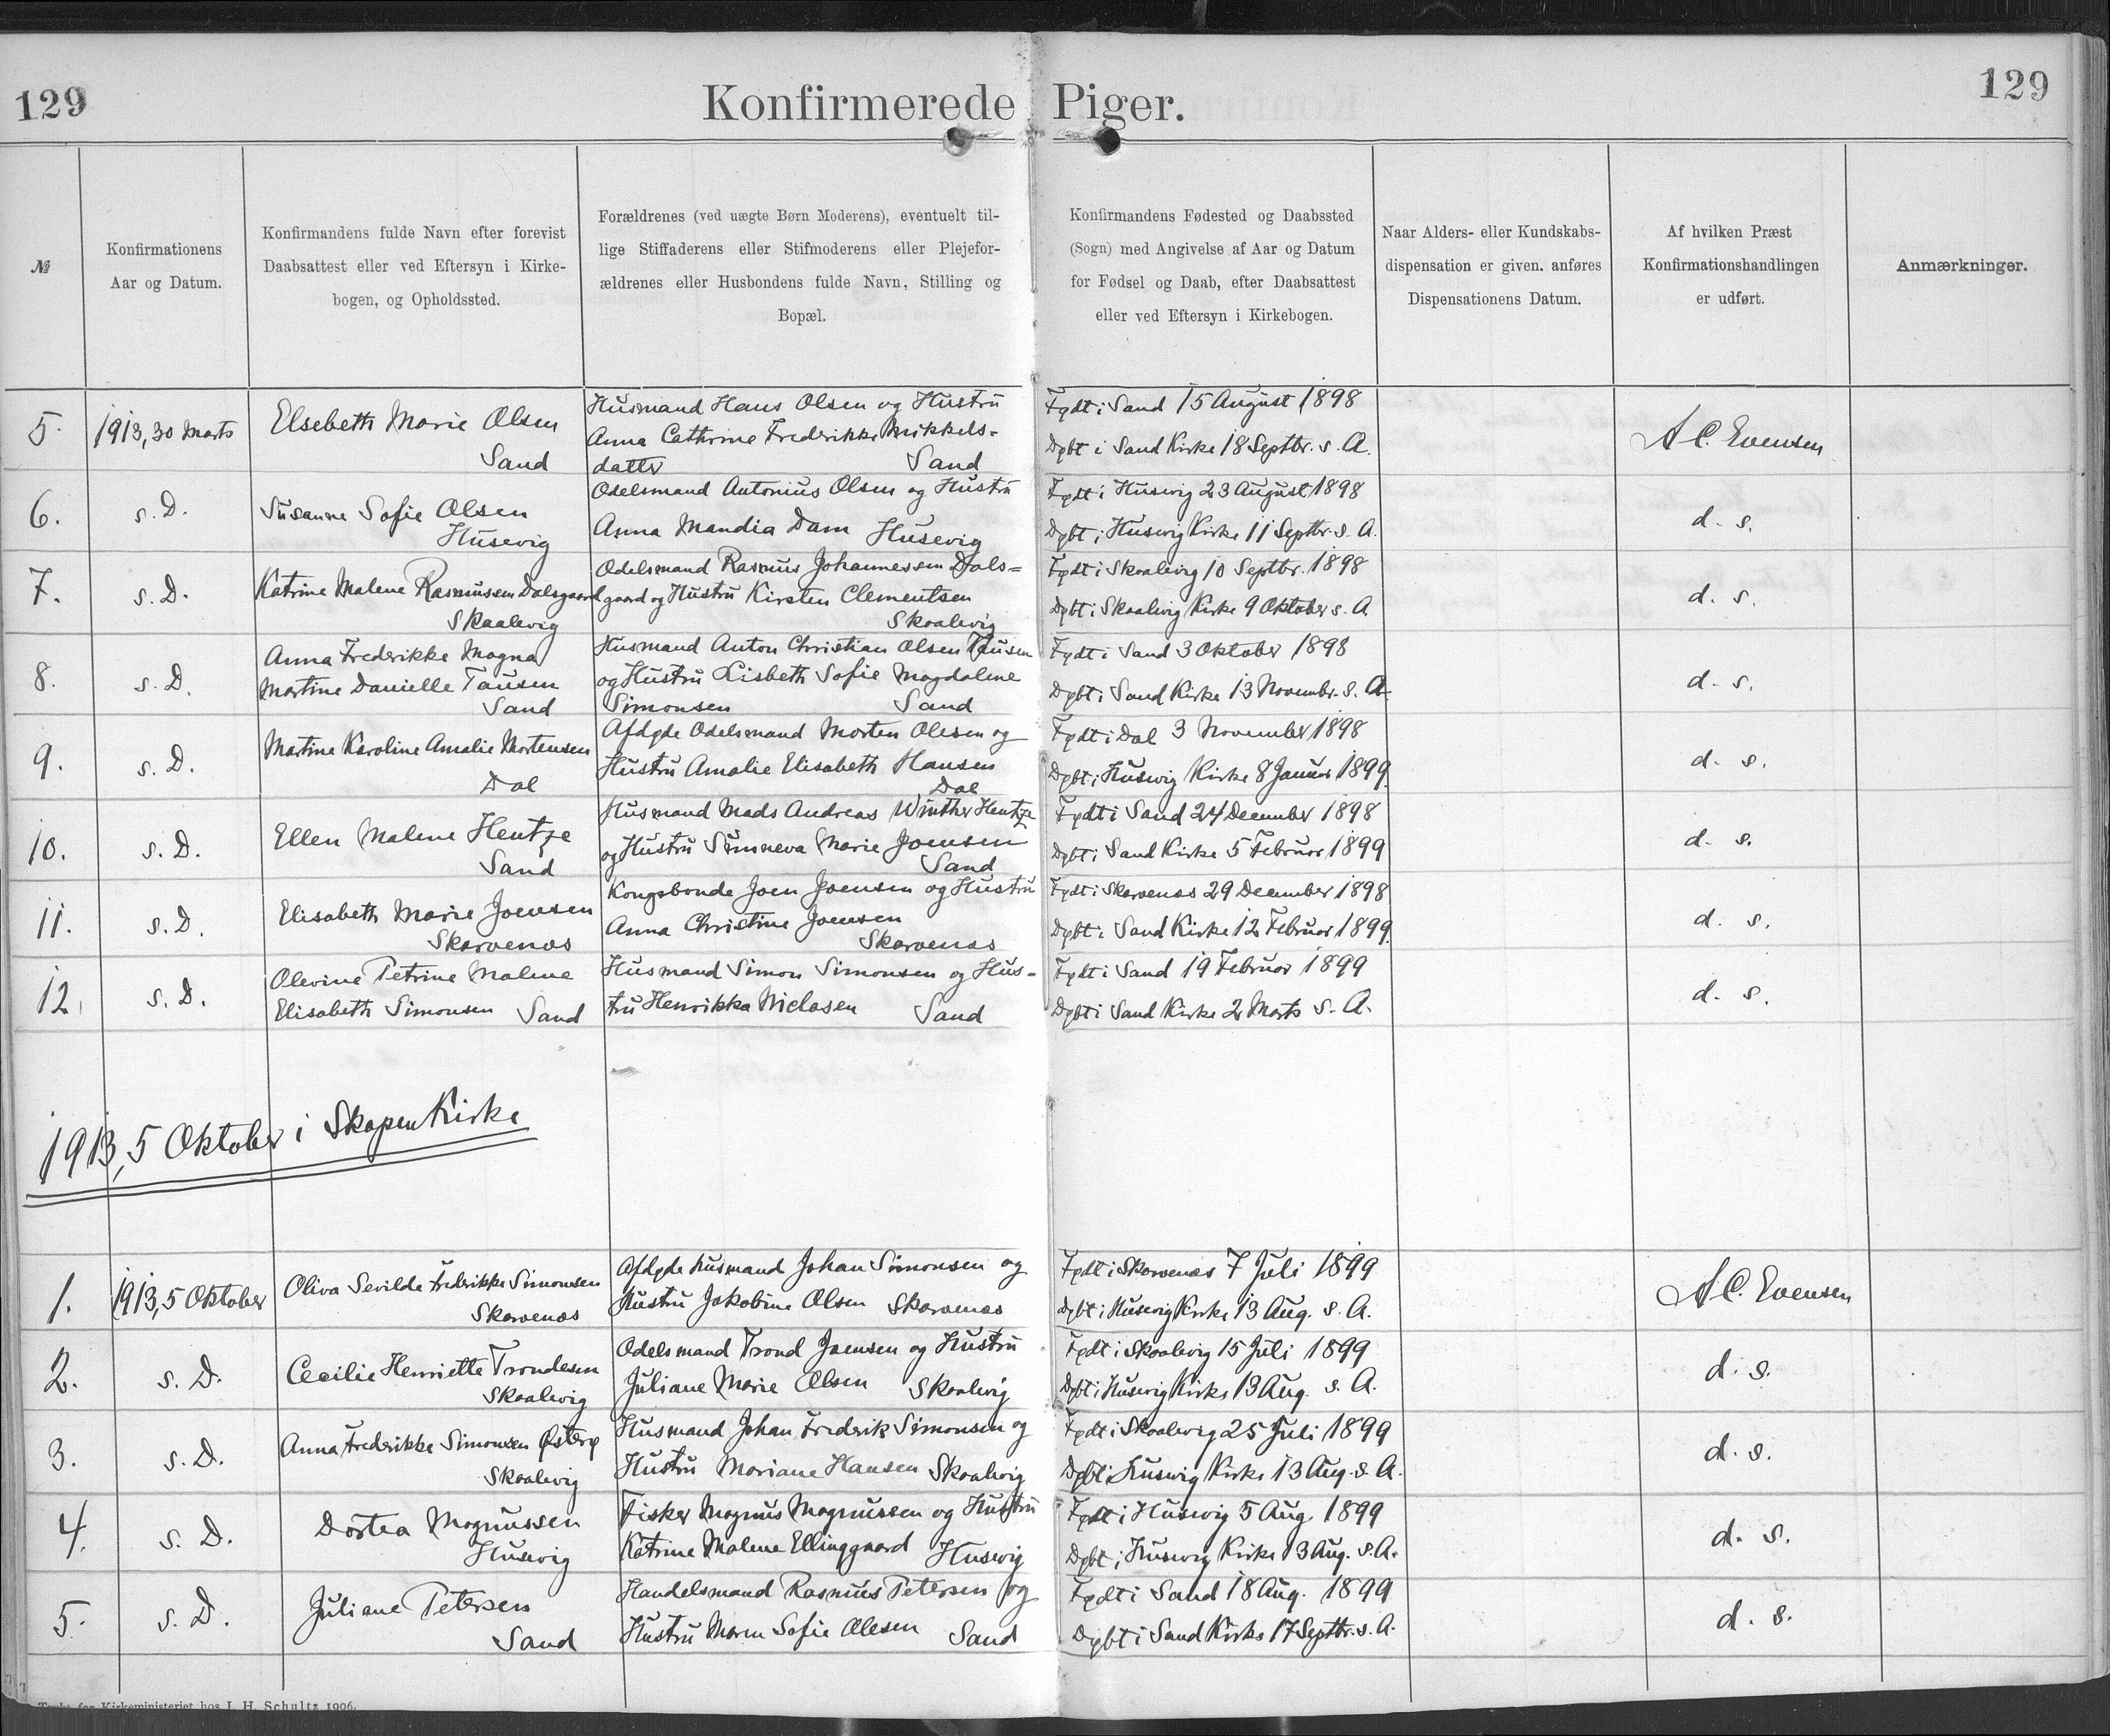 129
Konfirmerede Piger.
129
№
Konfirmationens
Aar og Datum.
Konfirmandens fulde Navn efter forevist
Daabsattest eller ved Eftersyn i Kirke-
bogen, og Opholdssted.
Forældrenes (ved uægte Børn Moderens), eventuelt til-
lige Stiffaderens eller Stifmoderens eller Plejefor-
ældrenes eller Husbondens fulde Navn, Stilling og
Bopæl.
Konfirmandens Fødested og Daabssted
(Sogn) med Angivelse af Aar og Datum
for Fødsel og Daab, efter Daabsattest
eller ved Eftersyn i Kirkebogen.
Naar Alders- eller Kundskabs-
dispensation er given. anføres
Dispensationens Datum.
Af hvilken Præst
Konfirmationshandlingen
er udført.
Anmærkninger.
5.
1913, 30 Marts
Elsebeth Marie Olsen
Sand
Husmand Hans Olsen og Hustru
Anna Cathrine Frederikke Mikkels-
datter Sand
Født i Sand 15 August 1898
Døbt i Sand Kirke 18 Septbr. s. A.
A C. Evensen
6.
s. D.
Susanne Sofie Olsen
Husevig
Odelsmand Antonius Olsen og Hustru
Anna Mandia Dam Husevig
Født i Husevig 23 August 1898
Døbt i Husevig Kirke 11 Septbr. s. A.
d. s.
7.
s. D.
Katrine Malene Rasmussen Dalsgaard
Skaalevig
Odelsmand Rasmus Johannessen Dals=
gaard og Hustru Kirsten Clementsen
Skaalevig
Født i Skaalevig 10 Septbr. 1898
Døbt i Skaalevig Kirke 9 Oktober s. A
d. s.
8.
s. D.
Anna Frederikke Magna
Martine Danielle Tausen
Sand
Husmand Anton Christian Olsen Tausen
og Hustru Lisbeth Sofie Magdalene
Simonsen Sand
Født i Sand 3 Oktober 1898
Døbt i Sand Kirke 13 Novembr. s. A.
d. s.
9.
s. D.
Martine Karoline Amalie Mortensen
Dal
Afdøde Odelsmand Morten Olesen og
Hustru Amalie Elisabeth Hansen
Dal
Født i Dal 3 November 1898
Døbt i Husevig Kirke 8 Januar 1899.
d. s.
10.
s. D.
Ellen Malene Hentze
Sand
Husmand Mads Andreas Winther Hentze
og Hustru Sunneva Marie Joensen
Sand
Født i Sand 24 December 1898
Døbt i Sand Kirke 5 Februar 1899
d. s.
11.
s. D.
Elisabeth Marie Joensen
Skarvenæs
Kongsbonde Joen Joensen og Hustru
Anna Christine Joensen
Skarvenæs
Født i Skarvenæs 29 December 1898
Døbt i Sand Kirke 12 Februar 1899.
d. s.
12.
s. D.
Olevine Petrine Malene
Elisabeth Simonsen Sand
Husmand Simon Simonsen og Hus-
tru Henrikka Niclasen Sand
Født i Sand 19 Februar 1899
Døbt i Sand Kirke 2 Marts s. A.
d. s.
1913, 5 Oktober i Skopen Kirke
1.
1913, 5 Oktober
Oliva Sevilde Frederikke Simonsen
Skarvenæs
Afdøde Husmand Johan Simonsen og
Hustru Jakobine Olsen Skarvenæs
Født i Skarvenæs 7 Juli 1899
Døbt i Husevig Kirke 13 Aug. s. A.
A C. Evensen
2.
s. D.
Cecilie Henriette Trondesen
Skaalevig
Odelsmand Trond Joensen og Hustru
Juliane Marie Olsen Skaalevig
Født i Skaalevig 15 Juli 1899
Døbt i Husevig Kirke 13 Aug. s. A.
d. s.
3.
s. D.
Anna Frederikke Simonsen Østerø
Skaalevig
Husmand Johan Frederik Simonsen og
Hustru Mariane Hansen Skaalevig
Født i Skaalevig 25 Juli 1899
Døbt i Husevig Kirke 13 Aug. s. A.
d. s.
4.
s. D.
Dortea Magnussen
Husevig
Fisker Magnus Magnussen og Hustru
Katrine Malene Ellinggaard Husevig
Født i Husevig 5 Aug. 1899
Døbt i Husevig Kirke 13 Aug. s. A.
d. s.
5.
s. D.
Juliane Petersen
Sand
Handelsmand Rasmus Petersen og
Hustru Maren Sofie Olesen Sand
Født i Sand 18 Aug. 1899
Døbt i Sand Kirke 17 Septbr. s. A.
d. s.
Trykt for Kirkeministeriet hos J. H. Schultz 1906.